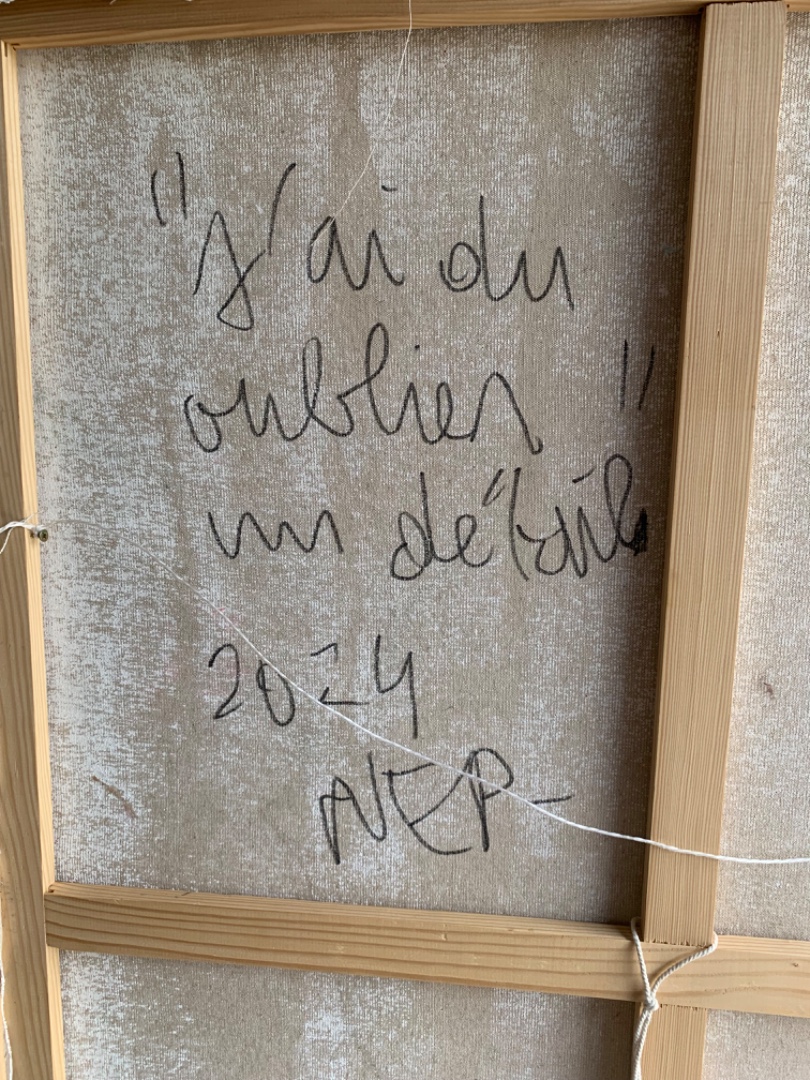 "J'ai du
oublier "
un détail
2024
NEP-